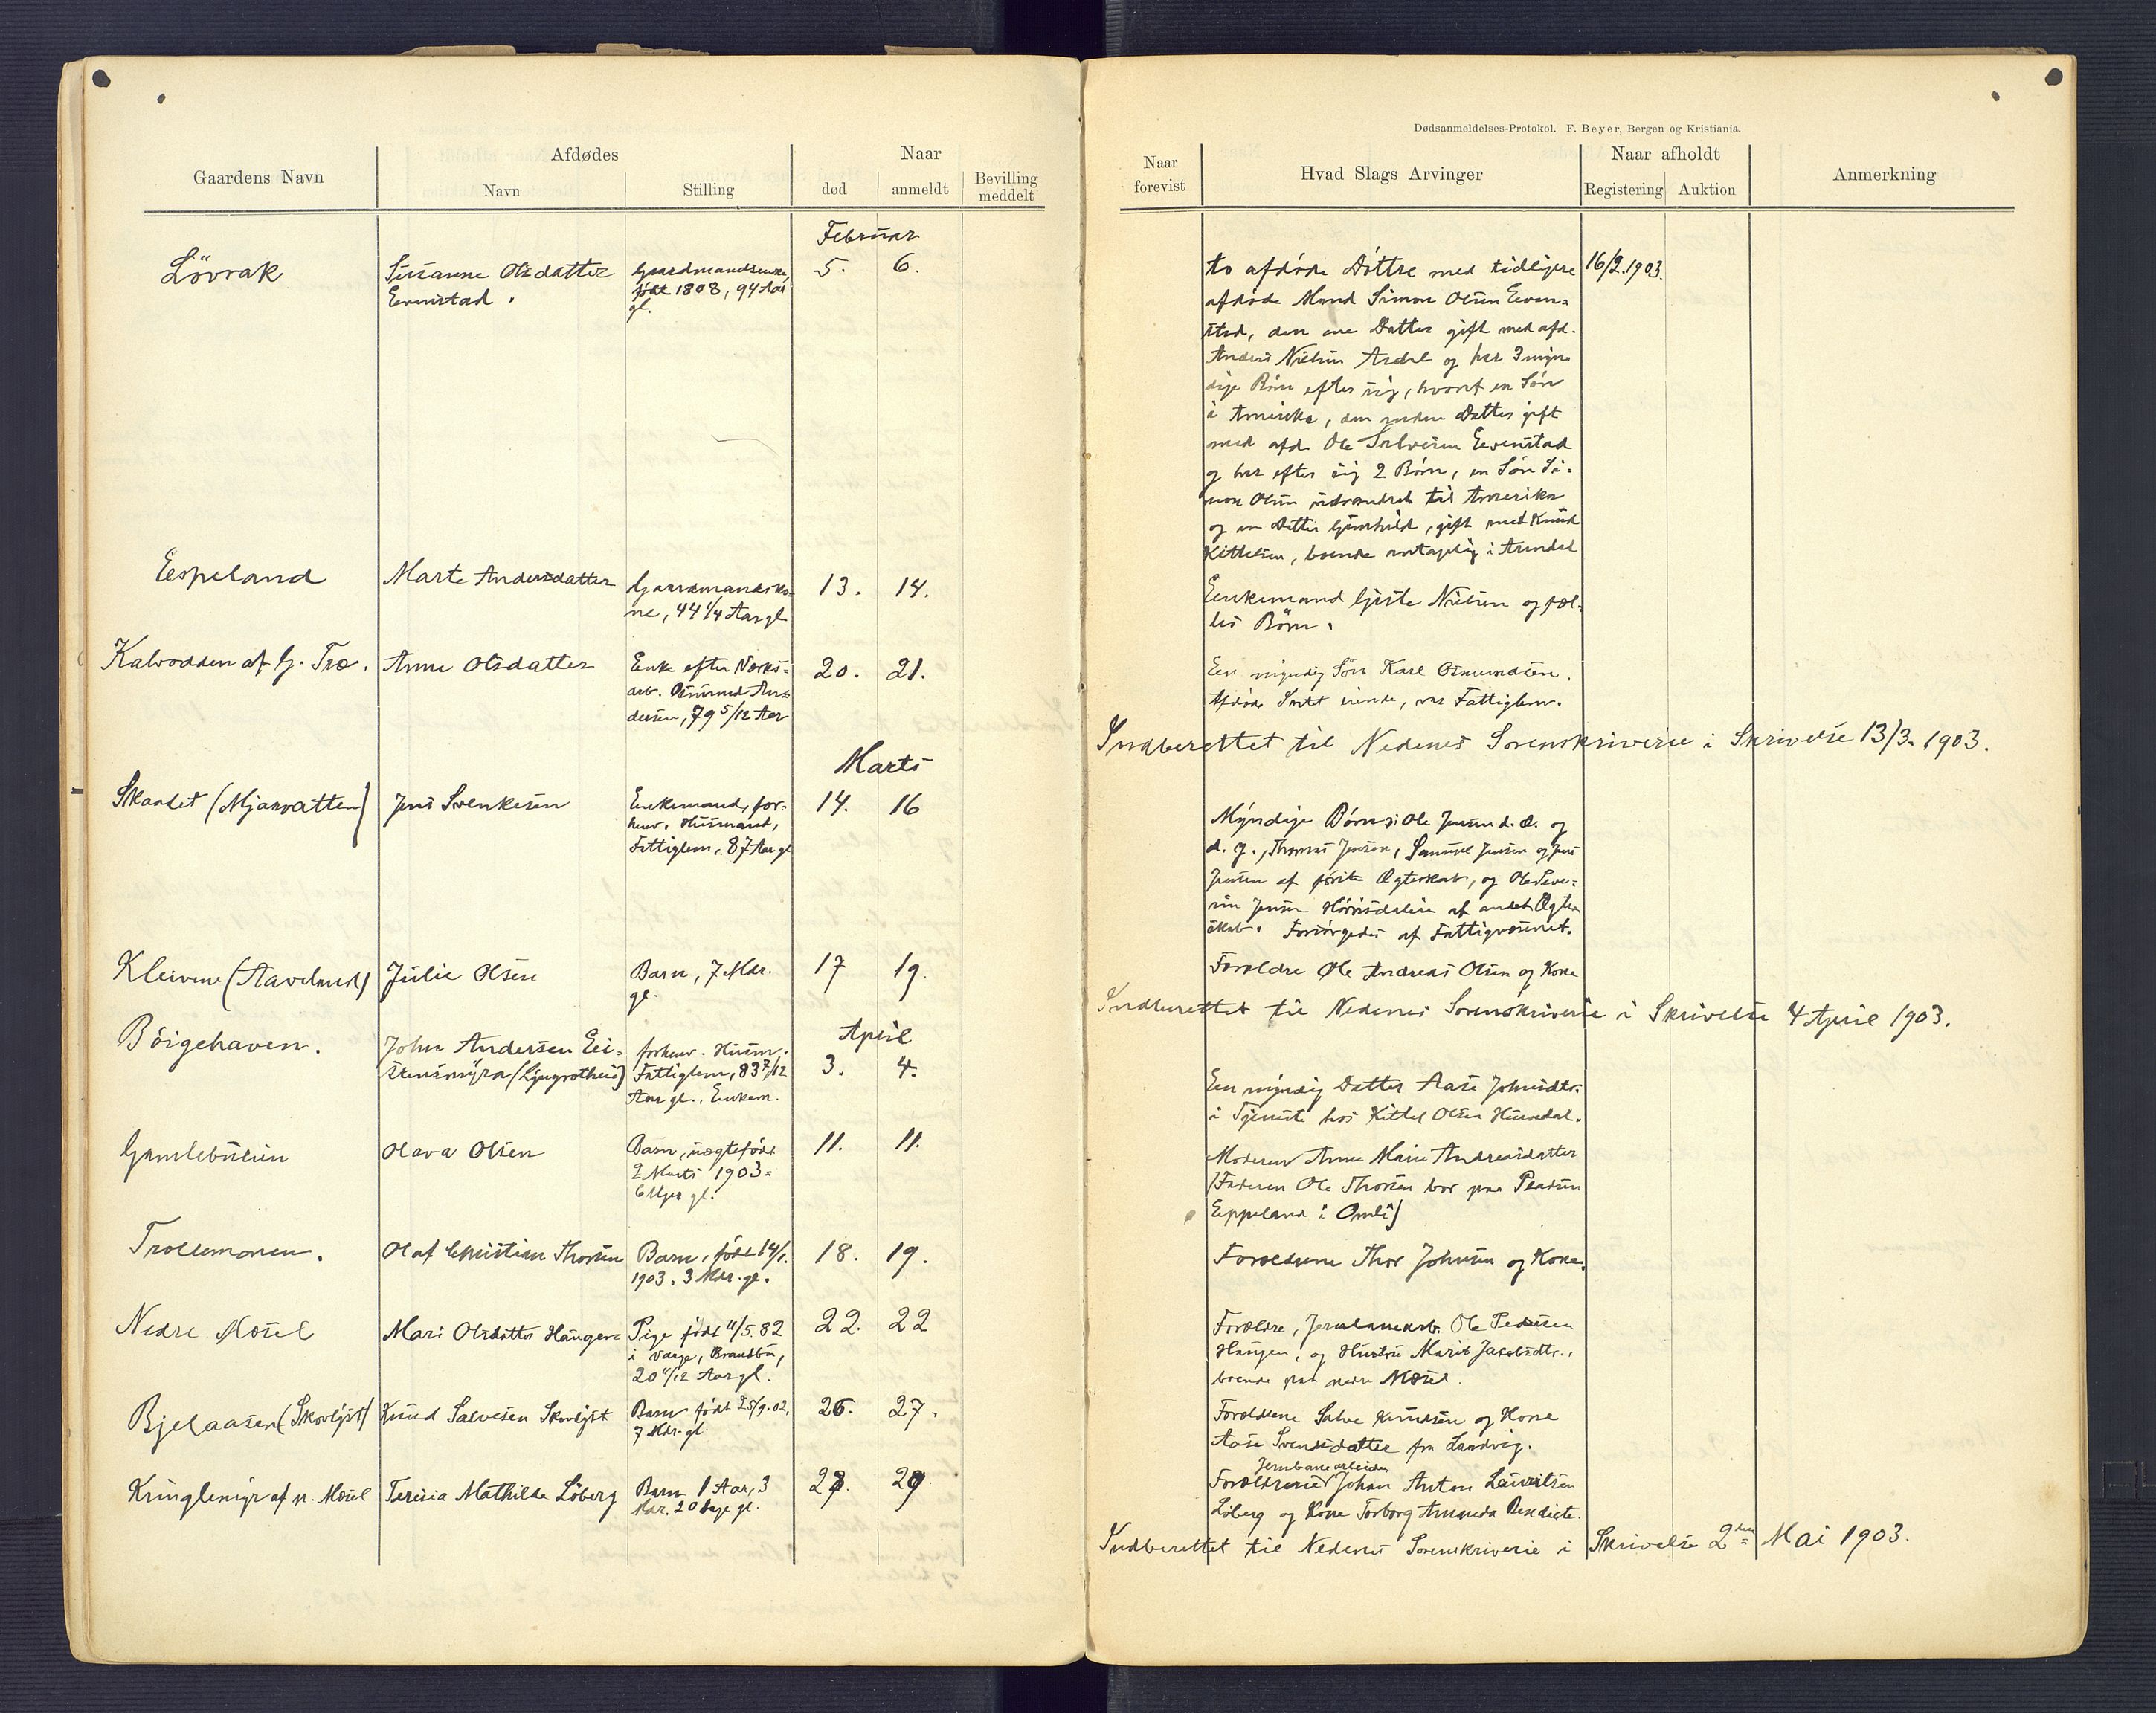 Dødsanmeldelses-Protokol. F. Beyer, Bergen og Kristiania.
Gaardens Navn
Afdødes
Navn
Stilling
Naar
død
anmeldt
Bevilling
meddelt
Naar
forevist
Hvad Slags Arvinger
Naar afholdt
Registering
Auktion
Anmerkning
Februar
Lövrak
Susanne Olsdatter
Evenstad.
Gaardmandsenke,
født 1808, 94 Aar
gl.
5.
6.
to afdøde Døttre med tidligere
afdøde Mand Simon Olsen Even=
stad, den ene Datter gift med afd.
Anders Nielsen Ardal og har 3 myn=
dige Børn efter sig, hvoraf en Søn
i Amerika, den anden Datter gift
med afd. Ole Salvesen Evenstad
og har efter sig 2 Børn, en Søn Si=
mon Olsen udvandret til Amerika
og en Datter Gunhild, gift med Knud
Kittelsen, boende antagelig i Arendal
16/2.1903.
Espeland
Marte Andersdatter
Gaardmandsko=
ne, 44 1/4 Aar gl
13.
14.
Enkemand Gjeste Nielsen og fæl=
les Børn.
Kalvodden af G. Træ.
Anne Olsdatter
Enke efter Værks=
arb. Osmund An=
dersen, 79 5/12 Aar
20.
21.
Een myndig Søn Karl Osmundsen.
Afdøde Intet eiende, var Fattiglem.
Indberettet til Nedenes Sorenskriverie i Skrivelse 13/3. 1903.
Marts
Skaalet (Mjaavatten)
Jens Svenkesen
Enkemand, for=
henv. Husmand,
Fattiglem, 87 Aar gl
14.
16
Myndige Børn: Ole Jensen d. æ. og
d. y., Thomas Jensen, Samuel Jensen og Jens
Jensen af første Ægteskab, og Ole Seve=
rin Jensen af andet Ægte
skab. Forsørgedes af Fattigvæsenet.
Kleivene (Aavelsund)
Julie Olsen
Barn, 7 Mdr.
gl.
17
19.
Forældre Ole Andreas Olsen og Kone
Indberettet til Nedenes Sorenskriverie i Skrivelse 4 April 1903.
April
Böigehaven.
John Andersen Ei=
stensmyra (Ljugrotheia)
forhenv. Husm.
Fattiglem, 83 7/12
Aar gl. Enkem.
3.
4.
Een myndig Datter Aase Johnsdtr.
i Tjeneste hos Kittel Olsen Huusdal.
Gamlebuseien
Olava Olsen
Barn, uægtefødt
2 Marts 1903=
6 Uger gl.
11.
11.
Moderen Anne Marie Andreasdatter
(Faderen Ole Thorsen bor paa Pladsen
Eppeland i Omli)
Trollemonen.
Olaf Christian Thorsen
Barn, født 14/1.
1903. 3 Mdr. gl.
18.
19.
Forældrene Thor Johnsen og Kone.
Nedre Mæsel
Mari Olsdatter Haugen
Pige født 11/5.82
i Vaage, Brandbu,
20 11/12 Aar gl.
22.
22
Forældre, Jernbanearb. Ole Pedersen
Haugen, og Hustru Marit Jacobsdtr.,
boende paa nedre Mæsel.
Bjelaasen (Skovlyst)
Knud Salvesen Skovlyst
Barn født 25/9.02,
7 Mdr. gl.
26.
27.
Forældrene Salve Knudsen og Kone
Aase Svendsdatter fra Landvig.
Kringlemyr af n. Mæsel
Teresia Mathilde Löberg
Barn 1 Aar, 3
Mdr. 20 Dage gl.
28.
29.
Jernbanearbeider
Forældrene Johan Anton Lauritsen
Löberg og Kone Torborg Amanda Benedicte.
Indberettet til Nedenes Sorenskriverie i Skrivelse 2den Mai 1903.